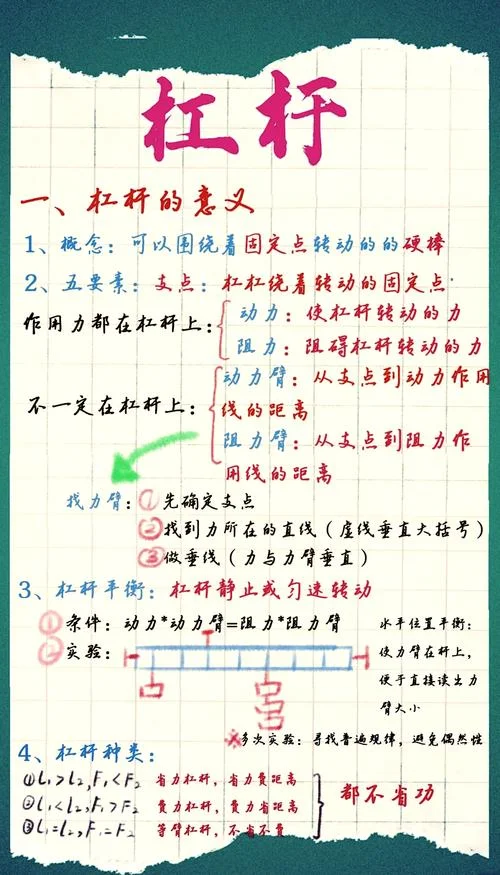 杠杆
一、杠杆的意义
1、概念：可以围绕着固定点转动的的硬棒
2、五要素：支点：杠杠绕着转动的固定点
作用力都在杠杆上：
动力：使杠杆转动的力
阻力：阻碍杠杆转动的力
不一定在杠杆上：
动力臂：从支点到动力作用
线的距离
阻力臂：从支点到阻力作
用线的距离
找力臂：①先确定支点
②找到力所在的直线（虚线垂直大括号）
③做垂线（力与力臂垂直）
3、杠杆平衡：杠杆静止或匀速转动
①条件：动力*动力臂=阻力*阻力臂
②实验：
水平位置平衡：
使力臂在杆上，
便于直接读出力
臂大小
※多次实验：寻找普遍规律，避免偶然性
4、杠杆种类：
①L₁>L₂,F₁<F₂ 省力杠杆，省力费距离
②L₁<L₂,F₁>F₂ 费力杠杆，费力省距离
③L₁=L₂,F₁=F₂ 等臂杠杆，不省不费
都不省功